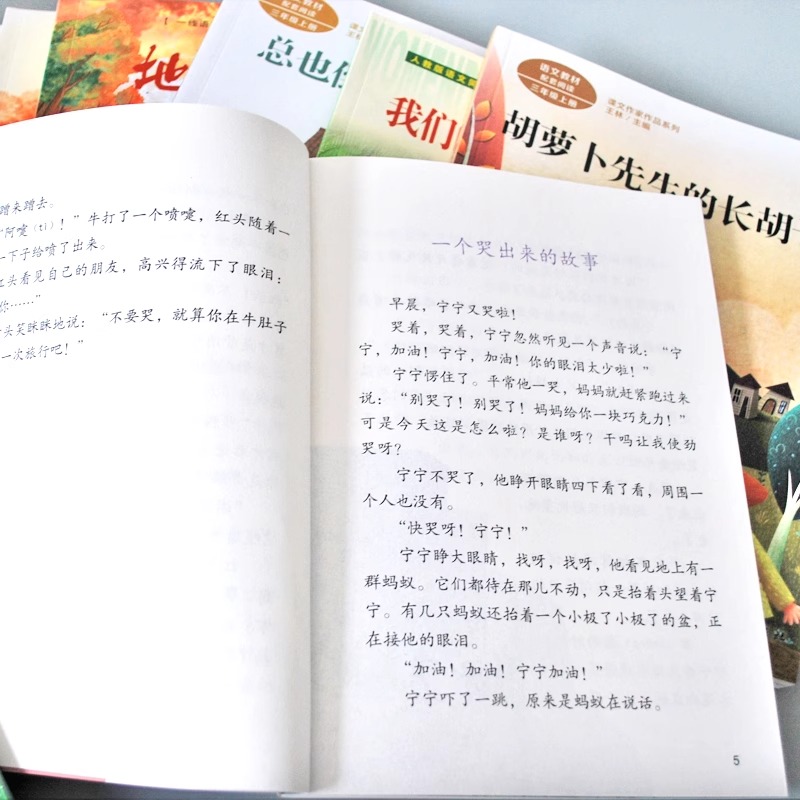 地
语文教材
配套阅读
三年级上册
课文
王林
总也
人教版语文
我们
语文教材
配套阅读
三年级上册
课文作家作品系列
王林/主编
胡萝卜先生的长胡
蹭来蹭去。
“阿嚏(tì)！”牛打了一个喷嚏，红头随着一
一下子给喷了出来。
红头看见自己的朋友，高兴得流下了眼泪：
你……”
头笑眯眯地说：“不要哭，就算你在牛肚子
一次旅行吧！”
一个哭出来的故事
早晨，宁宁又哭啦！
哭着，哭着，宁宁忽然听见一个声音说：“宁
宁，加油！宁宁，加油！你的眼泪太少啦！”
宁宁愣住了。平常他一哭，妈妈就赶紧跑过来
说：“别哭了！别哭了！妈妈给你一块巧克力！”
可是今天这是怎么啦？是谁呀？干吗让我使劲
哭呀？
宁宁不哭了，他睁开眼睛四下看了看，周围一
个人也没有。
“快哭呀！宁宁！”
宁宁睁大眼睛，找呀，找呀，他看见地上有一
群蚂蚁。它们都待在那儿不动，只是抬着头望着宁
宁。有几只蚂蚁还抬着一个小极了小极了的盆，正
在接他的眼泪。
“加油！加油！宁宁加油！”
宁宁吓了一跳，原来是蚂蚁在说话。
5